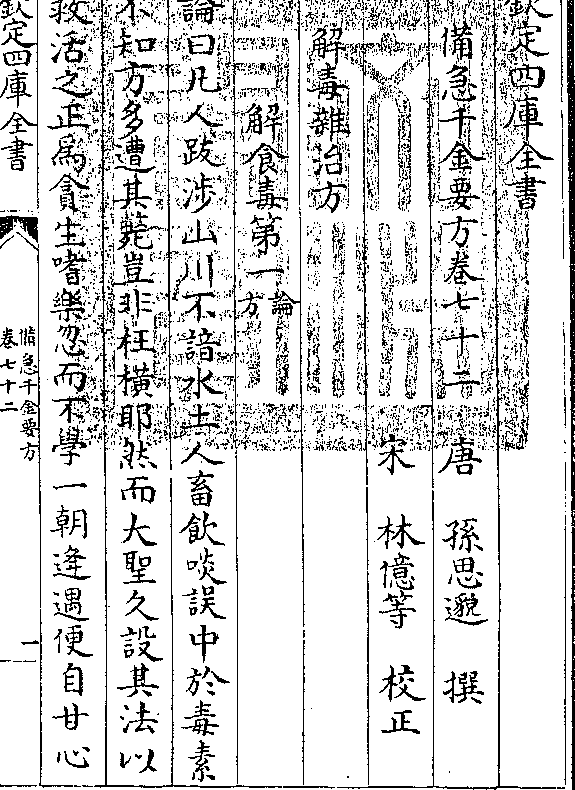 欽定四庫全書
備急千金要方卷七十二 唐 孫思邈 撰
宋 林億等 校正
解毒雜治方
解食毒第一論方
論曰凡人跋涉山川不諳水土人畜飲啖誤中於毒素
不知方多遭其斃豈非枉橫耶然而大聖久設其法以
救活之正為貪生嗜樂忽而不學一朝逢遇便自甘心
欽定四庫全書
備急千金要方
卷七十二
一